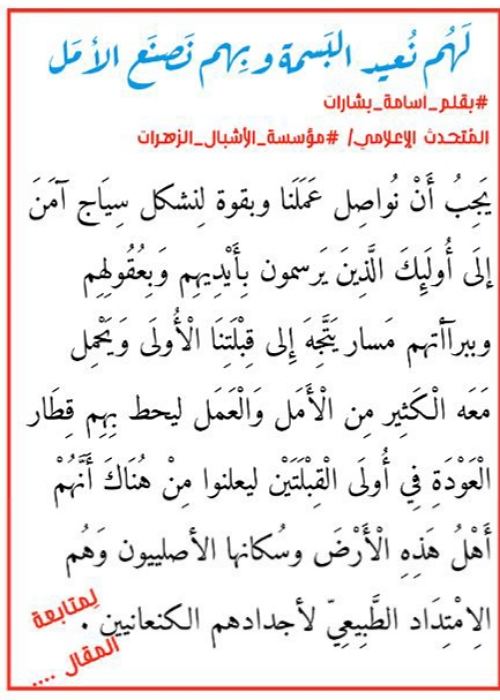 لَهُم نُعيد البَسمة و بِهم نَصنَع الأمَل
#بقلم_اسامة_بشارات
المُتحدث الإعلامي/ #مؤسسة_الأشبال_الزهرات
يَجِبُ أَنْ نُواصِل عَمَلَنَا وبقوة لِنشكل سِيَاج آمَنَ
إلَى أُولَئِكَ الَّذِينَ يَرسمون بِأَيْدِيهِم وَبِعُقُولِهِم
وببرآأتهم مَسار يَتَّجِهَ إلى قِبْلَتِنَا الْأُولَى وَيَحْمِل
مَعَه الْكَثِير مِن الْأَمَل وَالْعَمَل ليحط بِهِم قِطَار
الْعَوْدَةِ فِي أُولَى الْقِبْلَتَيْن ليعلنوا مِنْ هُنَاكَ أَنَّهُمْ
أَهْلُ هَذِهِ الْأَرْضَ وسُكانها الأصلييون وَهُم
الِامْتِدَاد الطَّبِيعِيّ لأجدادهم الكنعانيين .
لِمتابعة
المقال ....